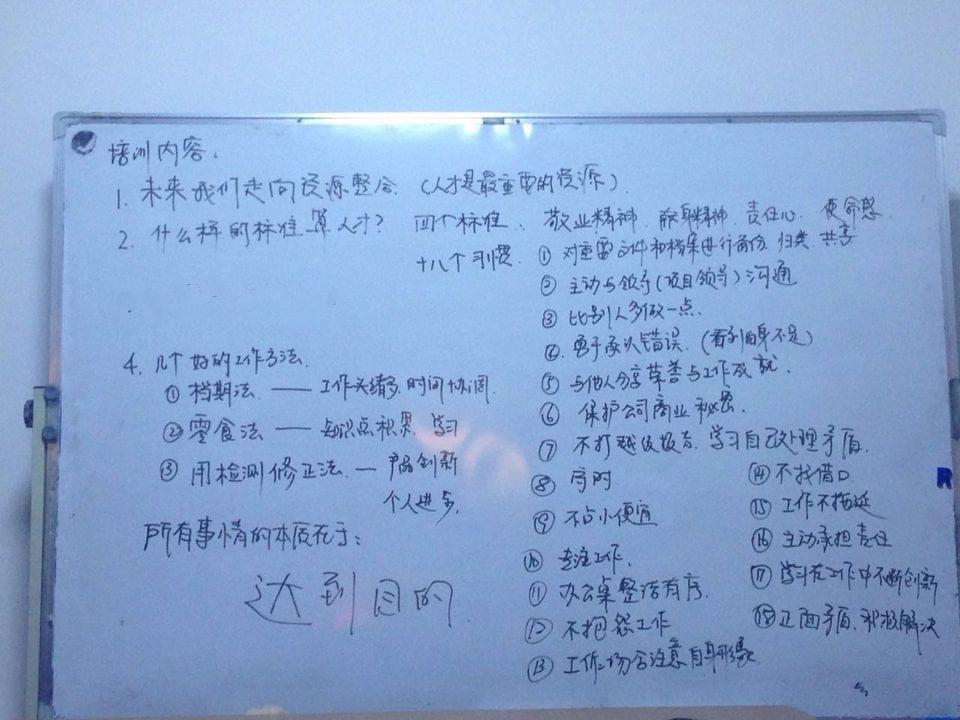 培训内容：
1. 未来我们走向资源整合 （人才是最重要的资源）.
2. 什么样的标准算人才? 四个标准： 敬业精神. 精神. 责任心. 使命感.
十八个习惯.
① 对重要文件和档案进行备份. 归类. 共享
② 主动与领导（项目领导）沟通
③ 比别人多做一点.
④. 勇于承认错误. （看到自身不足）
⑤ 与他人分享荣誉与工作成就.
⑥ 保护公司商业秘密.
⑦ 不打越级报告. 学习自己处理矛盾
⑧ 守时
⑨ 不占小便宜
⑩ 专注工作.
⑪ 办公桌整洁有序.
⑫ 不抱怨工作
⑬ 工作场合注意自身形象
⑭ 不找借口
⑮ 工作不拖延
⑯ 主动承担责任
⑰ 学习在工作中不断创新
⑱ 正面矛盾. 积极解决
4. 几个好的工作方法.
① 档期法 —— 工作头绪多. 时间协调.
② 零食法 —— 知识点积累. 学习
③ 用检测修正法. — 产品创新
个人进步.
所有事情的本质在于：
达到目的
R